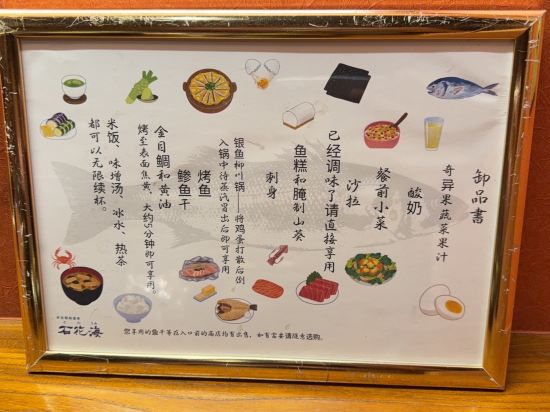 御品書
奇异果蔬菜果汁
酸奶
餐前小菜
沙拉
已经调味了请直接享用
鱼糕和腌制山葵
刺身
银鱼柳川锅——将鸡蛋打散后倒
入锅中待蒸汽冒出后即可享用
烤鱼
鲹鱼干
金目鲷和黄油
烤至表面焦黄、大约5分钟即可享用。
米饭、味增汤、冰水、热茶
都可以无限续杯。
石花海
您享用的鱼干等在入口前的商店均有出售，如有需要请随意选购。